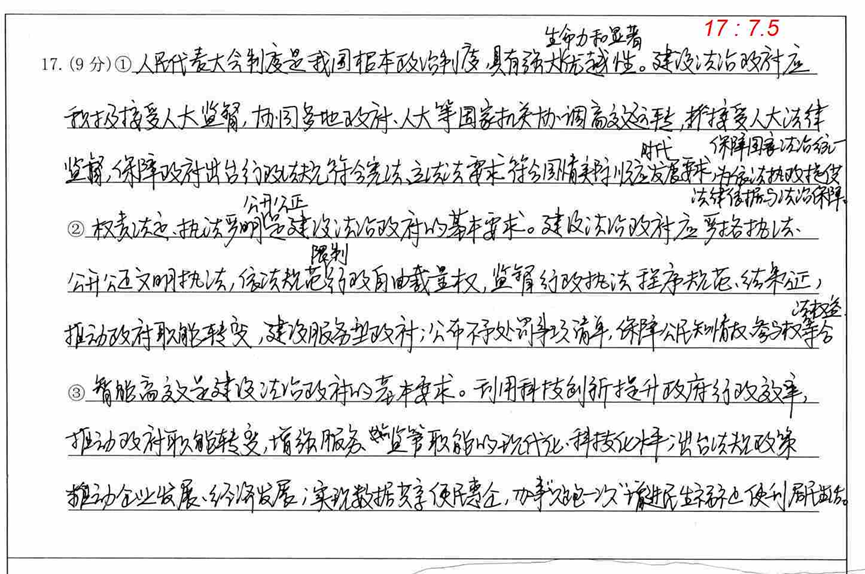 17 : 7.5
生命力和显著
17.(9分)①人民代表大会制度是我国根本政治制度,具有强大优越性。建设法治政府应
积极接受人大监督,协同各地政府、人大等国家机关协调高效运转,接受人大法律
时代 保障国家法治统一
监督,保障政府出台行政法规符合宪法、立法法要求,符合国情实际,顺应发展要求,为依法执政提供
法律依据与法治保障。
公开公正
②权责法定、执法严明是建设法治政府的基本要求。建设法治政府应严格执法、
限制
公开公正文明执法,依法规范行政自由裁量权,监督行政执法程序规范、结果公正,
法权益
推动政府职能转变,建设服务型政府;公布不予处罚事项清单,保障公民知情权、参与权等合
③智能高效是建设法治政府的基本要求。利用科技创新提升政府行政效率,
推动政府职能转变,增强服务、监管职能的现代化、科技化水平;出台法规政策
推动企业发展、经济发展;实现数据共享便民惠企,办事“只跑一次”增进民生福祉,便利居民生活。